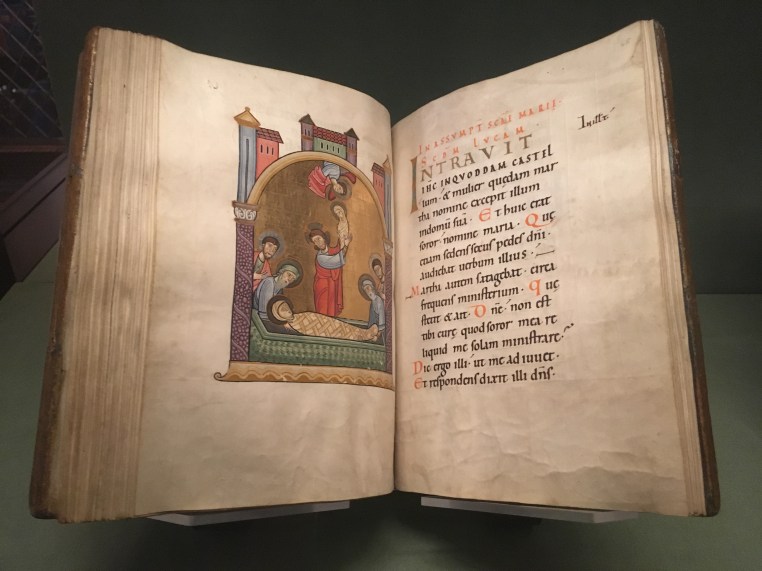 IN ASSVMPT SCAE MARIE.
SCDM LVCAM
INTRAVIT
IHC INQVODDAM CASTEL
lum. & mulier quędam mar
tha nomine excepit illum
indomũ suã. Et huic erat
soror nomine maria. Quę
etiam sedens secus pedes dñi.
audiebat uerbum illius.
Martha autem satagebat circa
frequens ministerium. quę
stetit & ait. Dñe. non est
tibi curę quod soror mea re
liquid me solam ministrare.
Dic ergo illi. ut me adiuuet.
Et respondens dixit illi dñs.